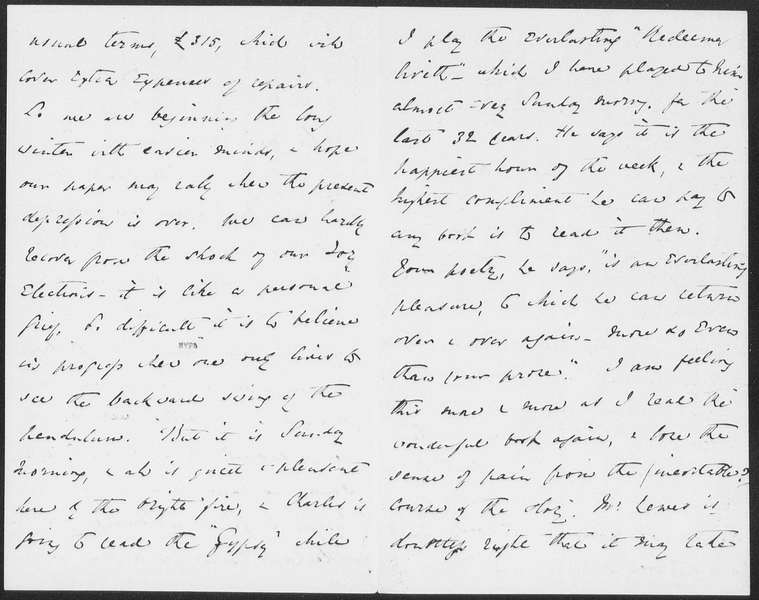 usual terms, £315, which will
cover extra expenses of repairs.
So we are beginning the long
winter with easier minds, & hope
our paper may rally when the present
depression is over. We can hardly
recover from the shock of our Tory
Elections - it is like a personal
grief, so difficult it is to believe
in progress when one only lives to
see the backward swing of the
pendulum. But it is Sunday
Morning, & all is quiet & pleasant
here by the bright fire, & Charles is
going to read the "Gypsy" while
I play the everlasting "Redeemer
liveth" - which I have played to him
almost every Sunday morng. for the
last 32 years. He says it is the
happiest hour of the week, & the
highest compliment he can pay to
any book is to read it then.
Your poetry, he says, "is an everlasting
pleasure, to which he can return
over & over again - more so even
than your prose." I am feeling
this more & more as I read the
wonderful book again, & lose the
sense of pain from the (inevitable?)
course of the story. Mr. Lewes is
doubtless right that it may take